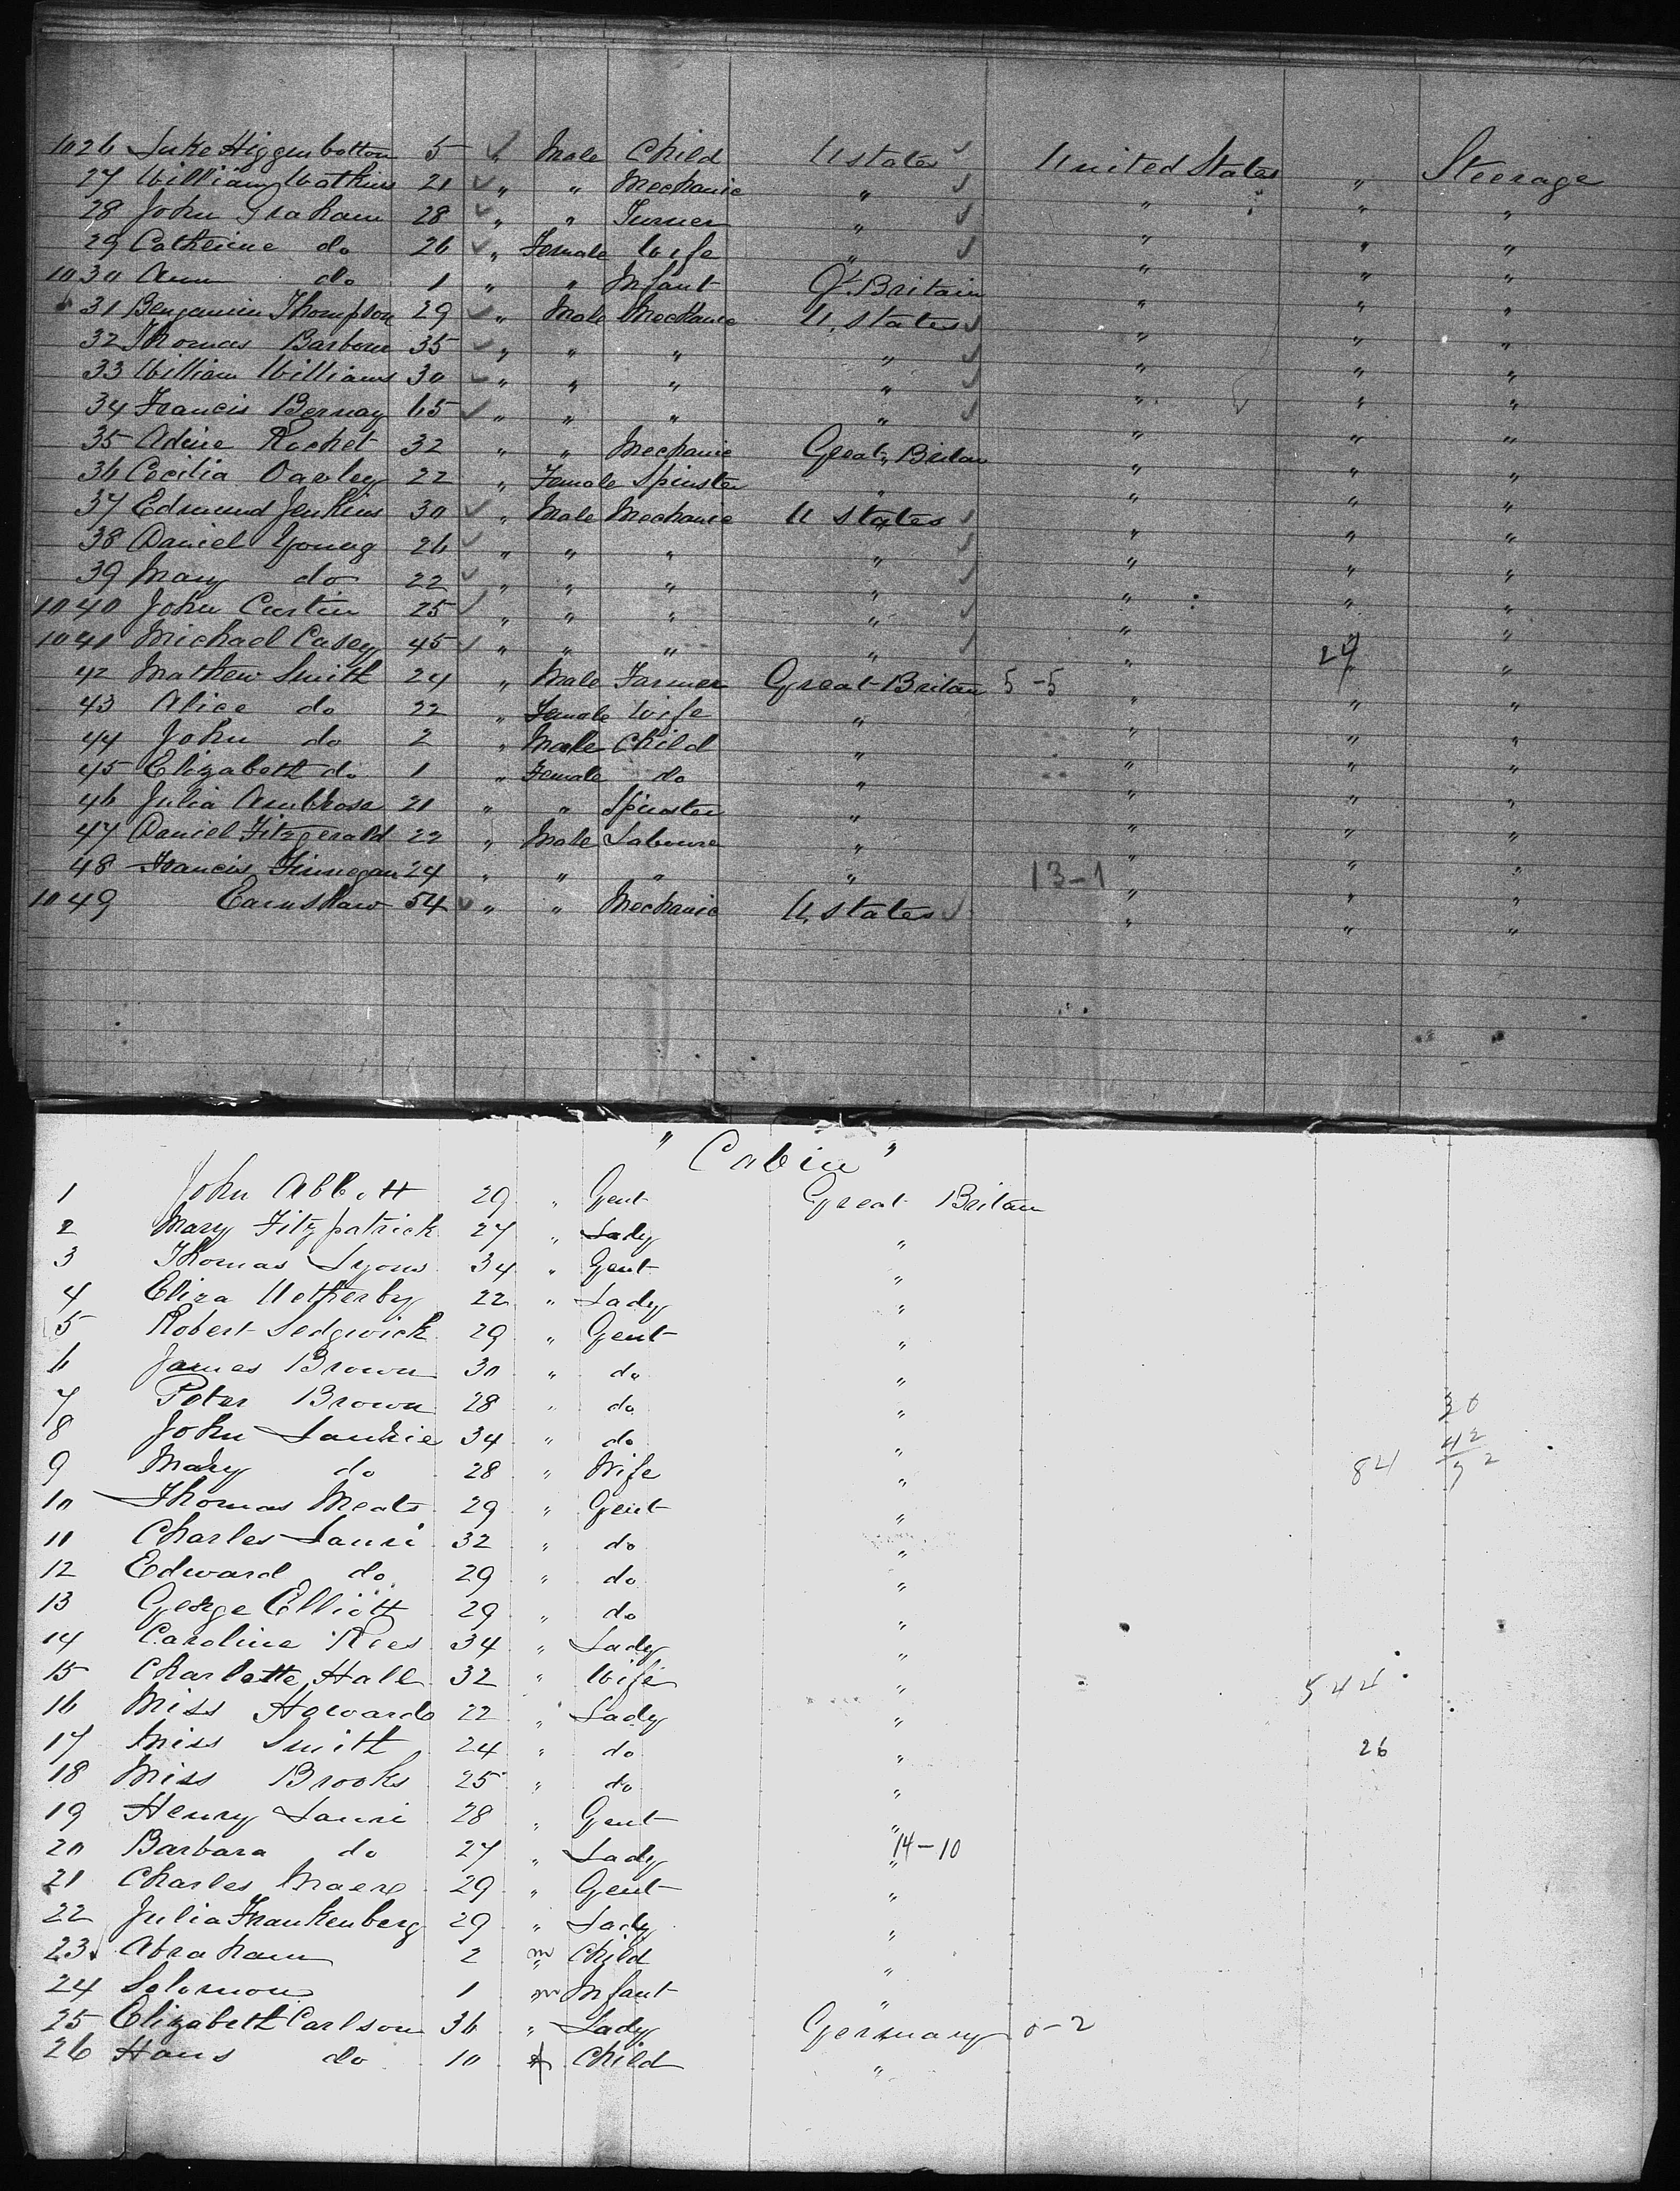 1026 Luke Higginbotton 5 ✓ " Male Child U States ✓ United States " Steerage
27 William Watkins 21 ✓ " " Mechanic " ✓ " " "
28 John Graham 28 ✓ " " Turner " ✓ " " "
29 Catherine do 26 ✓ " Female Wife " ✓ " " "
1030 Ann do 1 " " Infant Gt. Britain " " "
31 Benjamin Thompson 29 ✓ " Male Mechanic U. States ✓ " " "
32 Thomas Barbour 35 ✓ " " " " ✓ " " "
33 William Williams 30 ✓ " " " " ✓ " " "
34 Francis Bernay 65 ✓ " " " " ✓ " " "
35 Adine Rochet 32 " " Mechanic Great Britan " " "
36 Cecilia Oavley 22 " Female Spinster " " " "
37 Edmund Jenkins 30 ✓ " Male Mechanic U States ✓ " " "
38 Daniel Young 26 ✓ " " " " ✓ " " "
39 Mary do 22 ✓ " " " " ✓ " " "
1040 John Curtin 25 ✓ " " " " ✓ " " "
1041 Michael Casey 45 ✓ " " " " ✓ " 24 "
42 Mathew Smith 24 " Male Farmer Great Britan 5-5 " " "
43 Alice do 22 " Female Wife " " " "
44 John do 2 " Male Child " " " "
45 Elizabeth do 1 " Female do " " " "
46 Julia Ambrose 21 " " Spinster " " " "
47 Daniel Fitzgerald 22 " Male Laboure " " " "
48 Francis Finnegan 24 " " " " 13-1 " " "
1049 Earnshaw 54 ✓ " " Mechanic U. States ✓ " " "
" Cabin "
1 John Abbott 29 " Gent Great Britan
2 Mary Fitzpatrick 27 " Lady "
3 Thomas Lyons 34 " Gent "
4 Eliza Wetherby 22 " Lady "
5 Robert Sedgwick 29 " Gent "
6 James Brown 30 " do "
7 Peter Brown 28 " do " 30
8 John Laurie 34 " do " 42
9 Mary do 28 " Wife " 84 72
10 Thomas Meats 29 " Gent "
11 Charles Lauri 32 " do "
12 Edward do 29 " do "
13 George Elliott 29 " do "
14 Caroline Rees 34 " Lady "
15 Charlotte Hall 32 " Wife " 544
16 Miss Howard 22 " Lady "
17 Miss Smith 24 " do " 26
18 Miss Brooks 25 " do "
19 Henry Lauri 28 " Gent "
20 Barbara do 27 " Lady " 14-10
21 Charles 29 " Gent "
22 Julia Frankenberg 29 " Lady "
23 Abraham 2 m Child "
24 Solomon 1 m Infant "
25 Elizabeth Carlson 36 " Lady Germany 0-2
26 Hans do 10 Child "